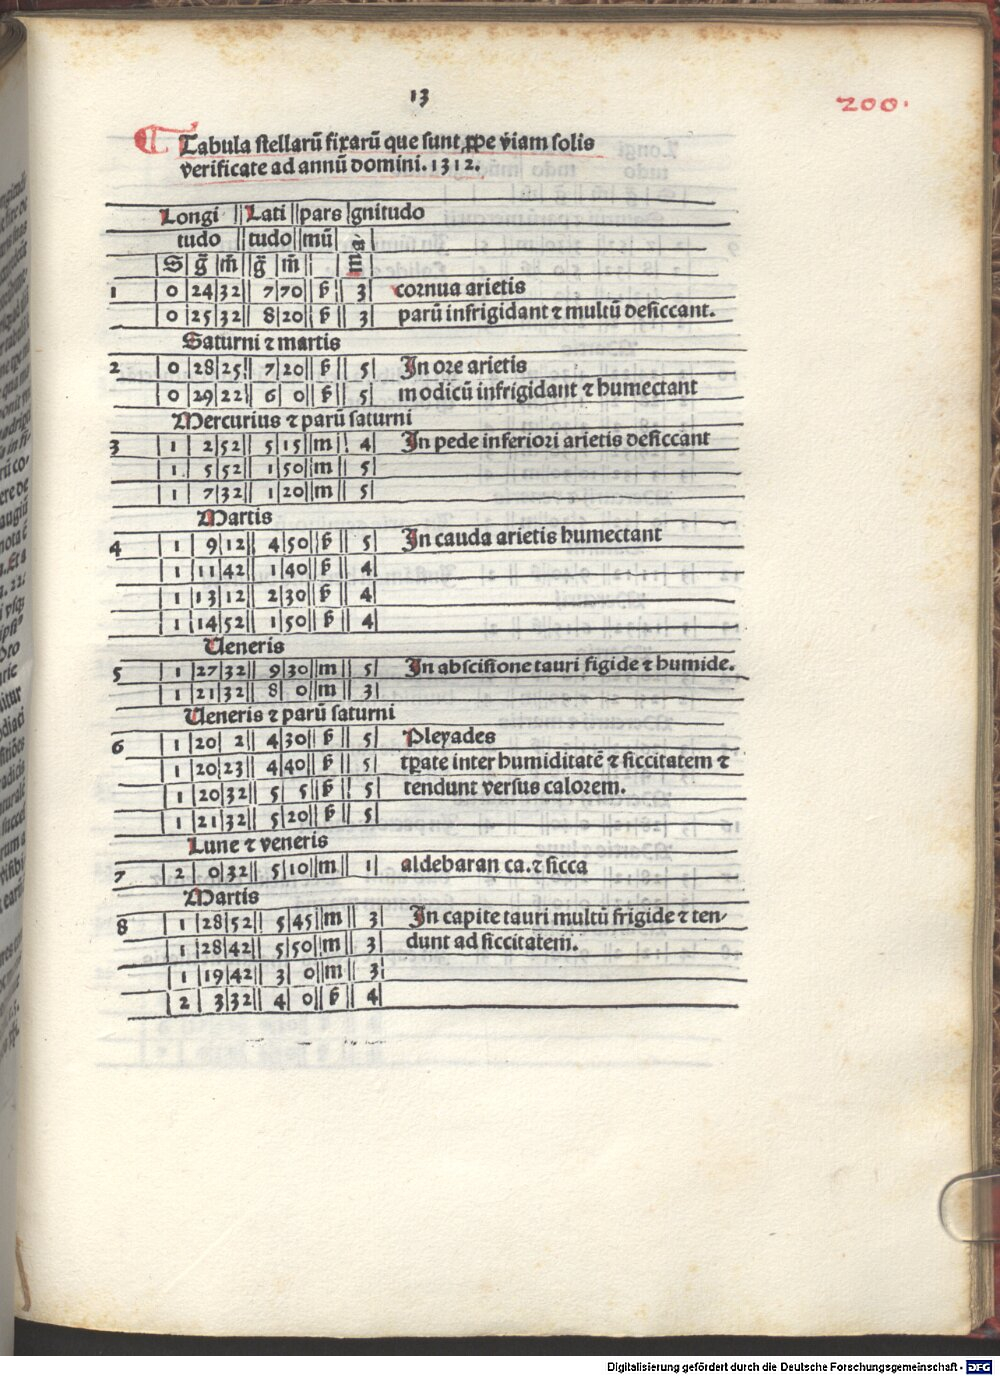 13
200.
Tabula stellarū fixarū que sunt ꝓpe viam solis
verificate ad annū domini. 1312.
Longi || Lati || pars | gnitudo
tudo || tudo || mū | ma
S | g̃ | m̃ || g̃ | m̃
1 | 0 | 24 | 32 || 7 | 70 || p̄ || 3 | cornua arietis
0 | 25 | 32 || 8 | 20 || p̄ || 3 | parū infrigidant ⁊ multū desiccant.
Saturni ⁊ martis
2 | 0 | 28 | 25 || 7 | 20 || p̄ || 5 | In ore arietis
0 | 29 | 22 || 6 | 0 || p̄ || 5 | modicū infrigidant ⁊ humectant
Mercurius ⁊ parū saturni
3 | 1 | 2 | 52 || 5 | 15 || m || 4 | In pede inferiori arietis desiccant
1 | 5 | 52 || 1 | 50 || m || 5
1 | 7 | 32 || 1 | 20 || m || 5
Martis
4 | 1 | 9 | 12 || 4 | 50 || p̄ || 5 | In cauda arietis humectant
1 | 11 | 42 || 1 | 40 || p̄ || 4
1 | 13 | 12 || 2 | 30 || p̄ || 4
1 | 14 | 52 || 1 | 50 || p̄ || 4
Veneris
5 | 1 | 27 | 32 || 9 | 30 || m || 5 | In abscisione tauri figide ⁊ humide.
1 | 21 | 32 || 8 | 0 || m || 3
Veneris ⁊ parū saturni
6 | 1 | 20 | 2 || 4 | 30 || p̄ || 5 | Pleyades
1 | 20 | 23 || 4 | 40 || p̄ || 5 | tꝑate inter humiditatē ⁊ siccitatem ⁊
1 | 20 | 32 || 5 | 5 || p̄ || 5 | tendunt versus calorem.
1 | 21 | 32 || 5 | 20 || p̄ || 5
Lune ⁊ veneris
7 | 2 | 0 | 32 || 5 | 10 || m || 1 | aldebaran ca. ⁊ sicca
Martis
8 | 1 | 28 | 52 || 5 | 45 || m || 3 | In capite tauri multū frigide ⁊ ten-
1 | 28 | 42 || 5 | 50 || m || 3 | dunt ad siccitatem.
1 | 19 | 42 || 3 | 0 || m || 3
2 | 3 | 32 || 4 | 0 || p̄ || 4
Digitalisierung gefördert durch die Deutsche Forschungsgemeinschaft - DFG